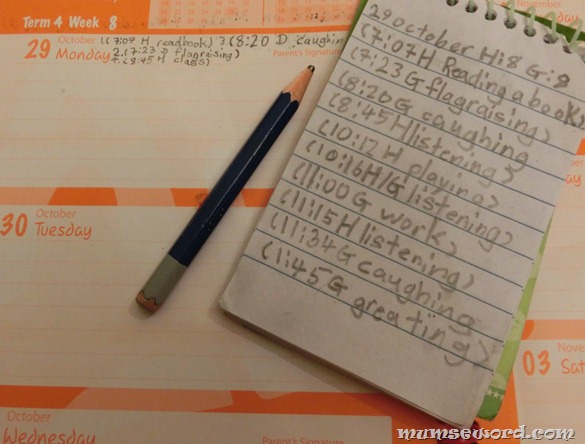 Term 4 Week 8
29 October
Monday
1.(7:07 H readbook) 3(8:20 D caughing
2.(7:23 D flagraising)
4.(8:45 H class)
Parent's Signature
30 October
Tuesday
October
Wednesday
Parent's Signature
03 Nove
Sat
29 october H:8 G:8
(7:07 H Reading a book)
(7:23 G flagraising)
(8:20 G caughing
(8:45 H listening)
(10:12 H playing)
(10:16 H/G listening)
(11:00 G work)
(11:15 H listening)
(11:34 G caughing)
(1:45 G caughing
greating)
mumseword.com